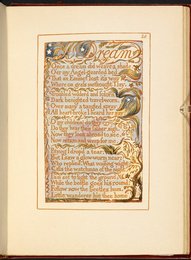 A Dream
Once a dream did weave a shade,
O'er my Angel-guarded bed,
That an Emmet lost its way
Where on grass methought I lay.
Troubled wilderd and forlorn
Dark benighted travel-worn,
Over many a tangled spray,
All heart-broke I heard her say.
do they cry
Do they hear their father sigh.
Now they look abroad to see,
Now return and weep for me.
Pitying I drop'd a tear:
But I saw a glow-worm near:
Who replied. What wailing wight
Calls the watchman of the night.
I am set to light the ground,
While the beetle goes his round:
Follow now the beetles hum,
Little wanderer hie thee home.